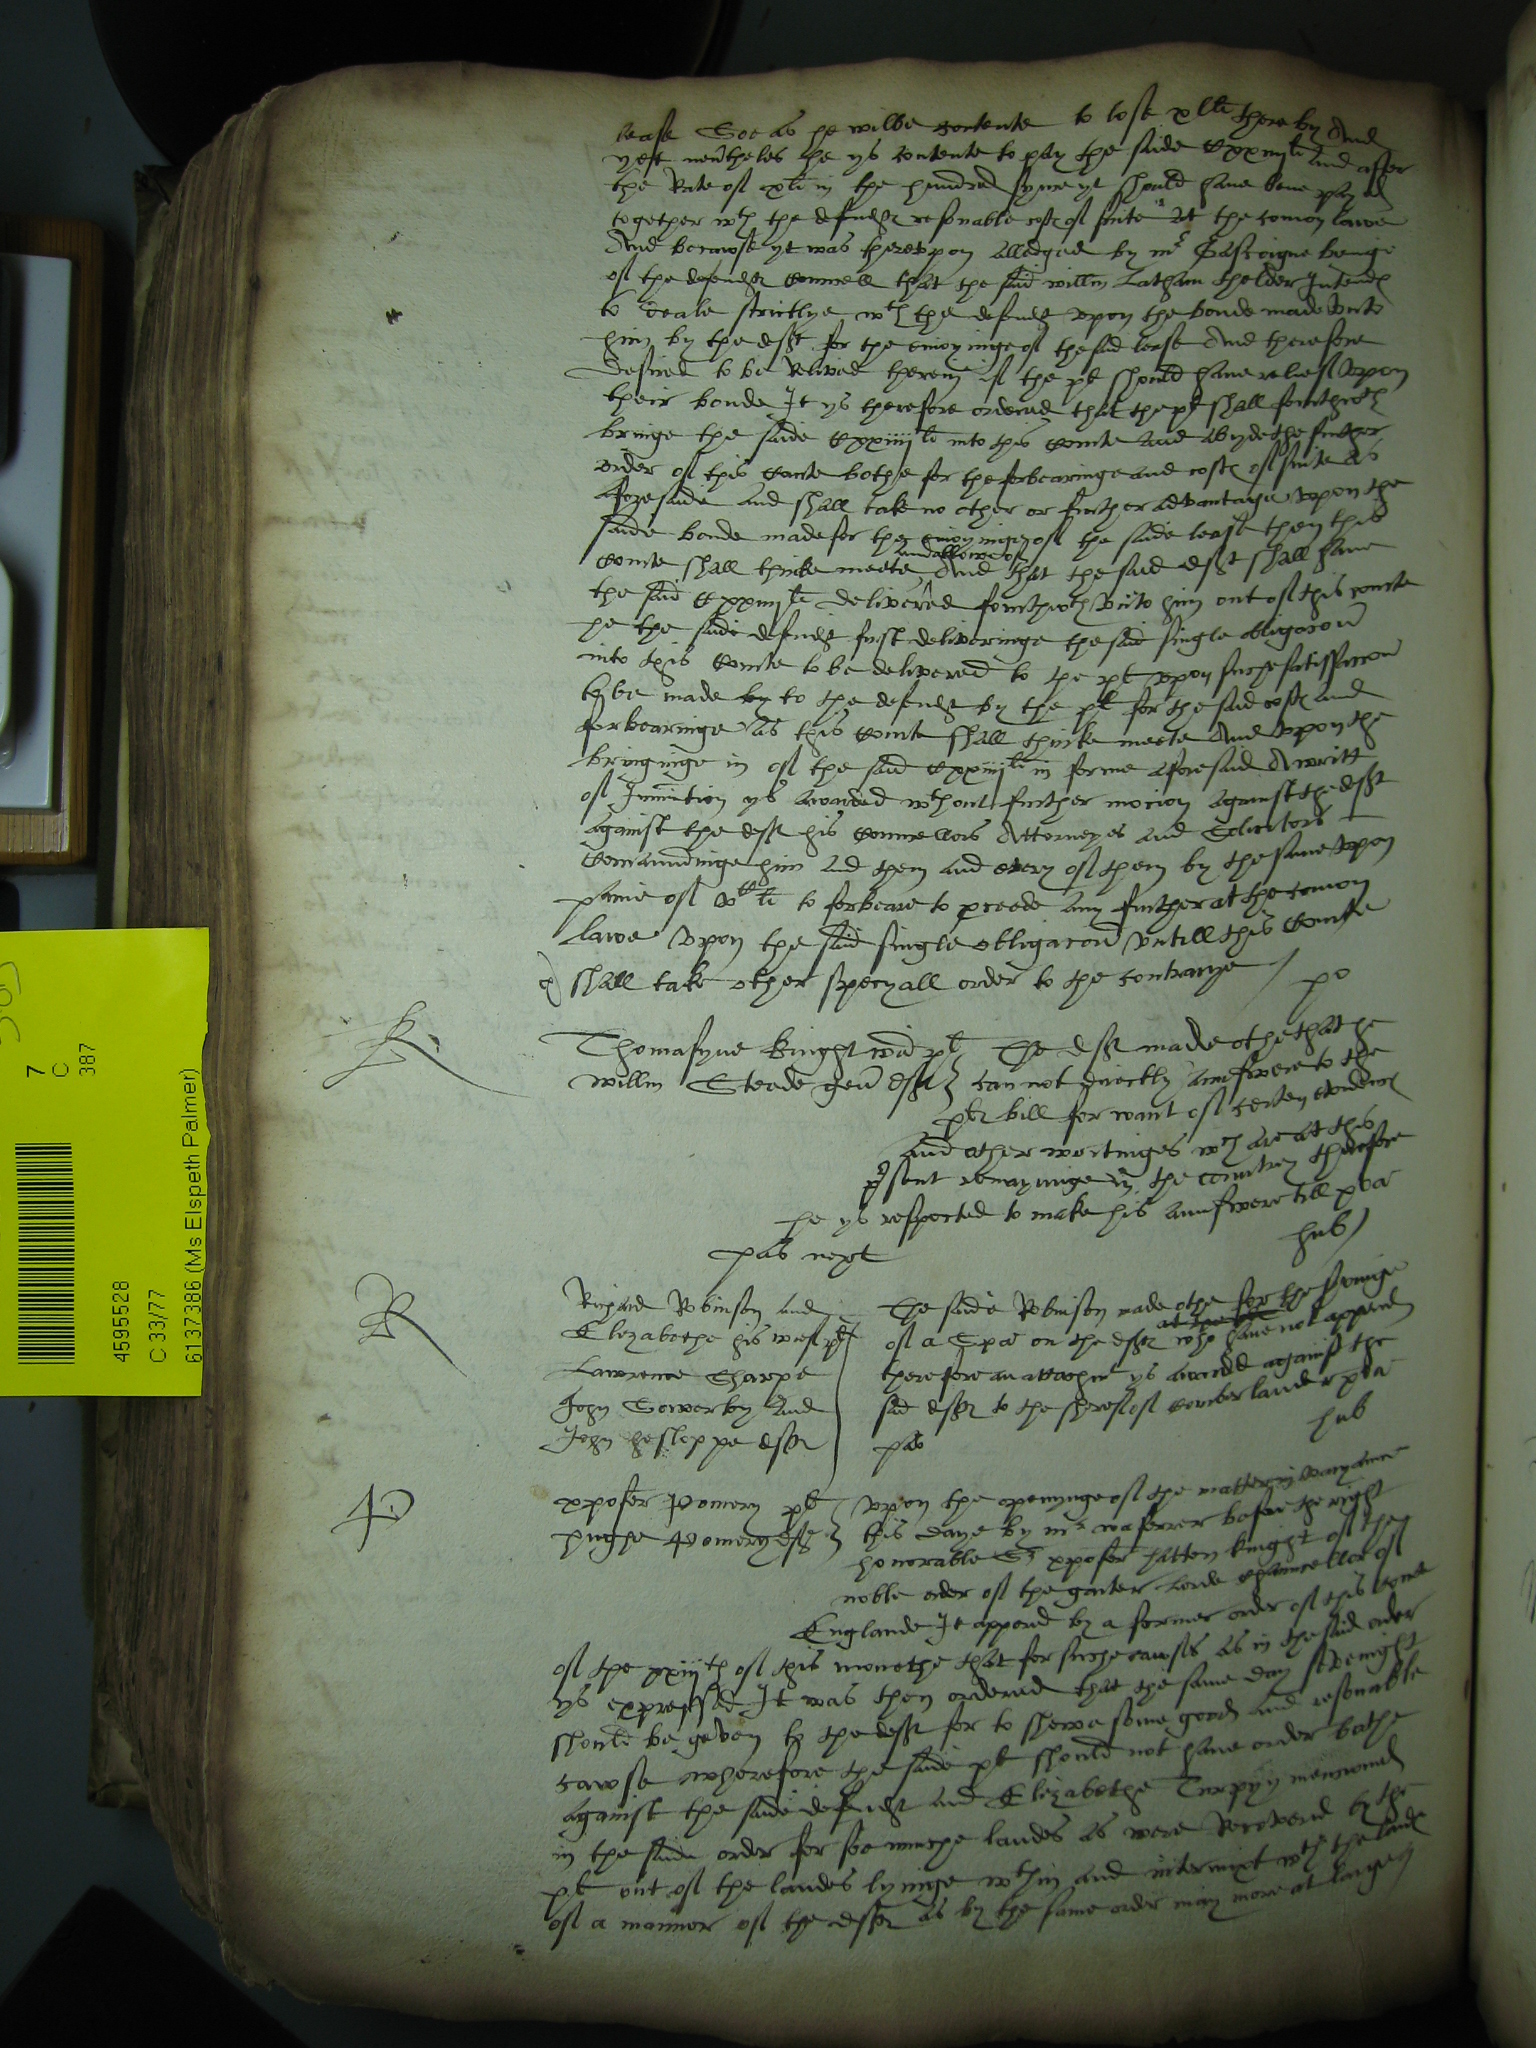 lease Soe as he wilbe contente to lose xl li thereby And
yet nevertheles he ys contente to pay the saide Cxxiiij li And after
the Rate of x li in the hundred synce yt should have bene payed
together wth the defendt resonable costs of suite At the comon lawe
And because yt was thereupon alledged by mr Gascoigne beinge
of the defendts Councell that the said willm Latham thelder Intends
to deale strictlye wth the defendt upon the bonde made unto
him by the deft for the enioyinge of the said lease And therefore
desired to be Relived herein if the pl should have relief upon
their bonde It ys therefore ordered that the pl shall forthwth
bringe the saide Cxxiiij li into this Courte and abyde the further
order of this Courte bothe for the forbearinge and costs of suite as
aforesaide and shall take no other or further advantage upon the
saide bonde made for the enioyinge of the saide lease then this
Courte shall thinke meete and allowe of And that the said deft shall have
the said Cxxiiij li delivered forthwth unto him out of this courte
he the saide defendt first deliveringe the said single obligacon
into this Courte to be delivered to the pl upon suche satisfaccon
to be made by to the defendt by the pl for the said costs and
forbearinge as this Courte shall thinke meete And upon the
bringinge in of the said Cxxiiij li in forme aforesaid A writt
of Iniunction ys awarded wthout further mocion against the deft
against the deft his Councellors Attorneyes and Solicitors
Comaundinge him and them and every of them by the same upon
paine of vC li to forbeare to procede any further at the comon
lawe upon the said single obligacon untill this Courte
shall take other specyall order to the contrarye
po
K
Thomasyne Knight wid pl The deft made othe that he
willm Steede gen deft cannot directly aunswere to the
pls bill for want of certen evidences
and other wrytinges wch are at this
present remayninge in the countrey therefore
he ys respected to make his aunswere till xva
pas next
hub
R
Richard Robinson and
Elizabethe his wief pls
Lawrence Sharpe
John Sowerby and
John Hesloppe defts
The saide Robinson made othe for the servinge
of a Spa on the defts at the who have not appeared
therefore an attachmt ys awarded against the
said defts to the sheref of Comberlande r xva
pas
hub
P
xpofer Pomery pl upon the openynge of the matter in varyaunce
Hughe Pomery deft this daye by mr waferrer before the right
honorable Sr xpofer Hatton knight of the
noble order of the garter Lorde Chauncellor of
Englande It appered by a former order of this Courte
of the xxiijth of this monethe that for suche cawses as in the said order
ys expressed It was then ordered that the same day sevenight
should be geven to the deft for to shewe some good and resonable
cawse wherefore the saide pl should not have order bothe
against the saide defendt and Elizabethe Turpyn mencioned
in the saide order for soe muche landes as were Recovered by the
pl out of the landes lyinge wthin and intermixt wth the lands
of a mannor of the defts as by the same order may more at large
7
C
387
4595528
C 33/77
6137386 (Ms Elspeth Palmer)